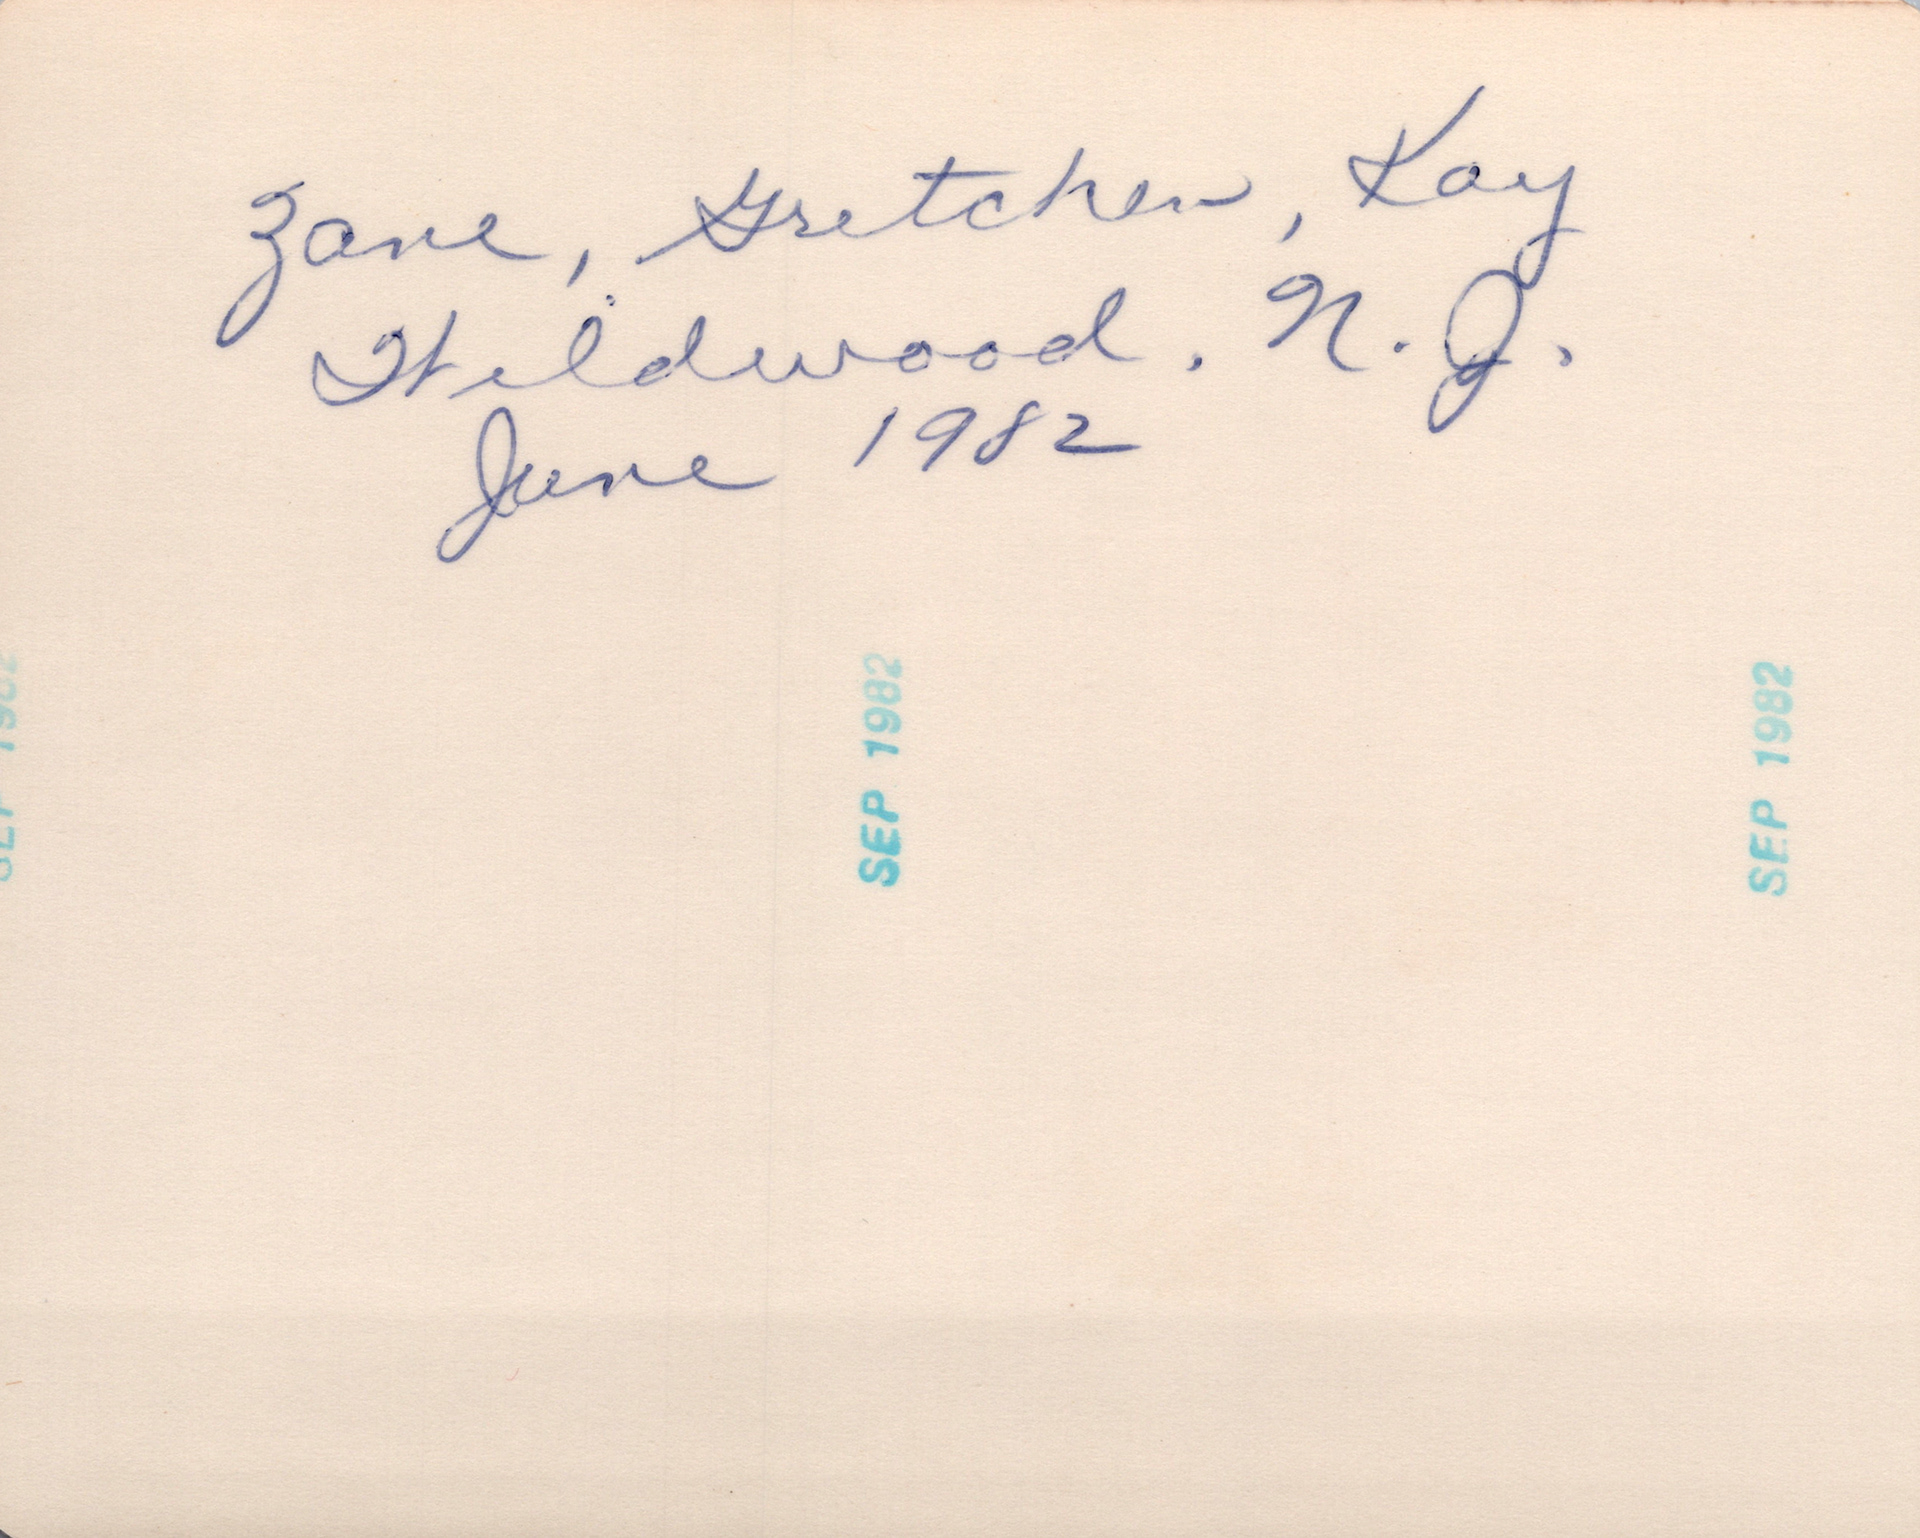 Zane, Gretchen, Kay
Wildwood, N.J.
June 1982
SEP 1982
SEP 1982
SEP 1982